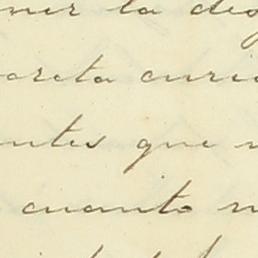 ner la des
oreta curio
ntes que n
cuanto n